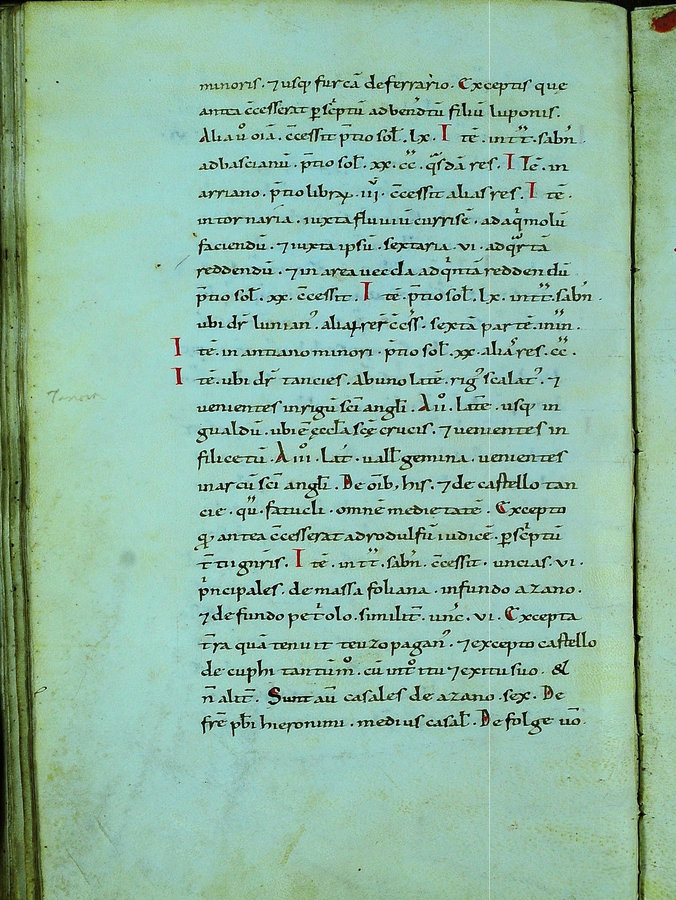 minoris · ⁊ usq; furcā de ferrario. Exceptis que
antea c̄cesserat p̱ sc̄ptū ad bendtū filiū luponis.
Alia ů oīa . c̄cessit p̄tio sol̄ . lx . I tē . in tt̄ . sabn̄
ad bascianū . p̄tio sol̄ . xx . cc̄ . q̄sdā res . I tē . in
arriano . p̄tio libraꝝ . iii . c̄cessit alias res . I tē .
in tornaria . iuxta fluviū currisē . ad aq̄molū
faciendū . ⁊ iuxta ipsū . sextaria . vi . ad q̄rtā
reddendū . ⁊ in area veccla ad q̄ntā reddendū
p̄tio sol̄ . xx . c̄cessit . I tē . p̄tio sol̄ . lx . in tt̄ . sabn̄ .
ubi dr̄ lunian⁹ . aliaꝝ reꝝ c̄cess̄ . sextā partē . in in̄ .
I tē . in antiano minori . p̄tio sol̄ . xx . alias res . cc̄ .
I tē . ubi dr̄ tancies . Ab uno latē . rig⁹ scalat⁹ . ⁊
venientes in rigū sc̄i angl̄i . A iiº . latē . usq; in
gualdū . ubi ē ęccl̄a sc̄ę crucis . ⁊ venientes in
filicetū . A iiiº . lat̄ . vall̄ gemina . venientes
in arcū sc̄i angl̄i . De oīb; his . ⁊ de castello tan
cie . qů . fatucli . omnē medietatē . Excepto
qđ antea c̄cesserat ad rodulfū iudicē . p̱ sc̄ptū
t̄tii gn̄ris . I tē . in tt̄ . sabn̄ . c̄cessit . uncias . vi .
p̄ncipales . de massa foliana . in fundo azano .
⁊ de fundo pet̄olo . similit̄ . unc̄ . vi . Excepta
t̄ra quā tenuit teuzo pagan⁹ . ⁊ excepto castello
de cuphi tantūm̊ . cū int̊itu ⁊ exitu suo . &
n̄ alit̄ . Sunt aū casales de azano . sex . De
fr̄e p̄bi hieronimi . medius casal̄ . De folge ůo .